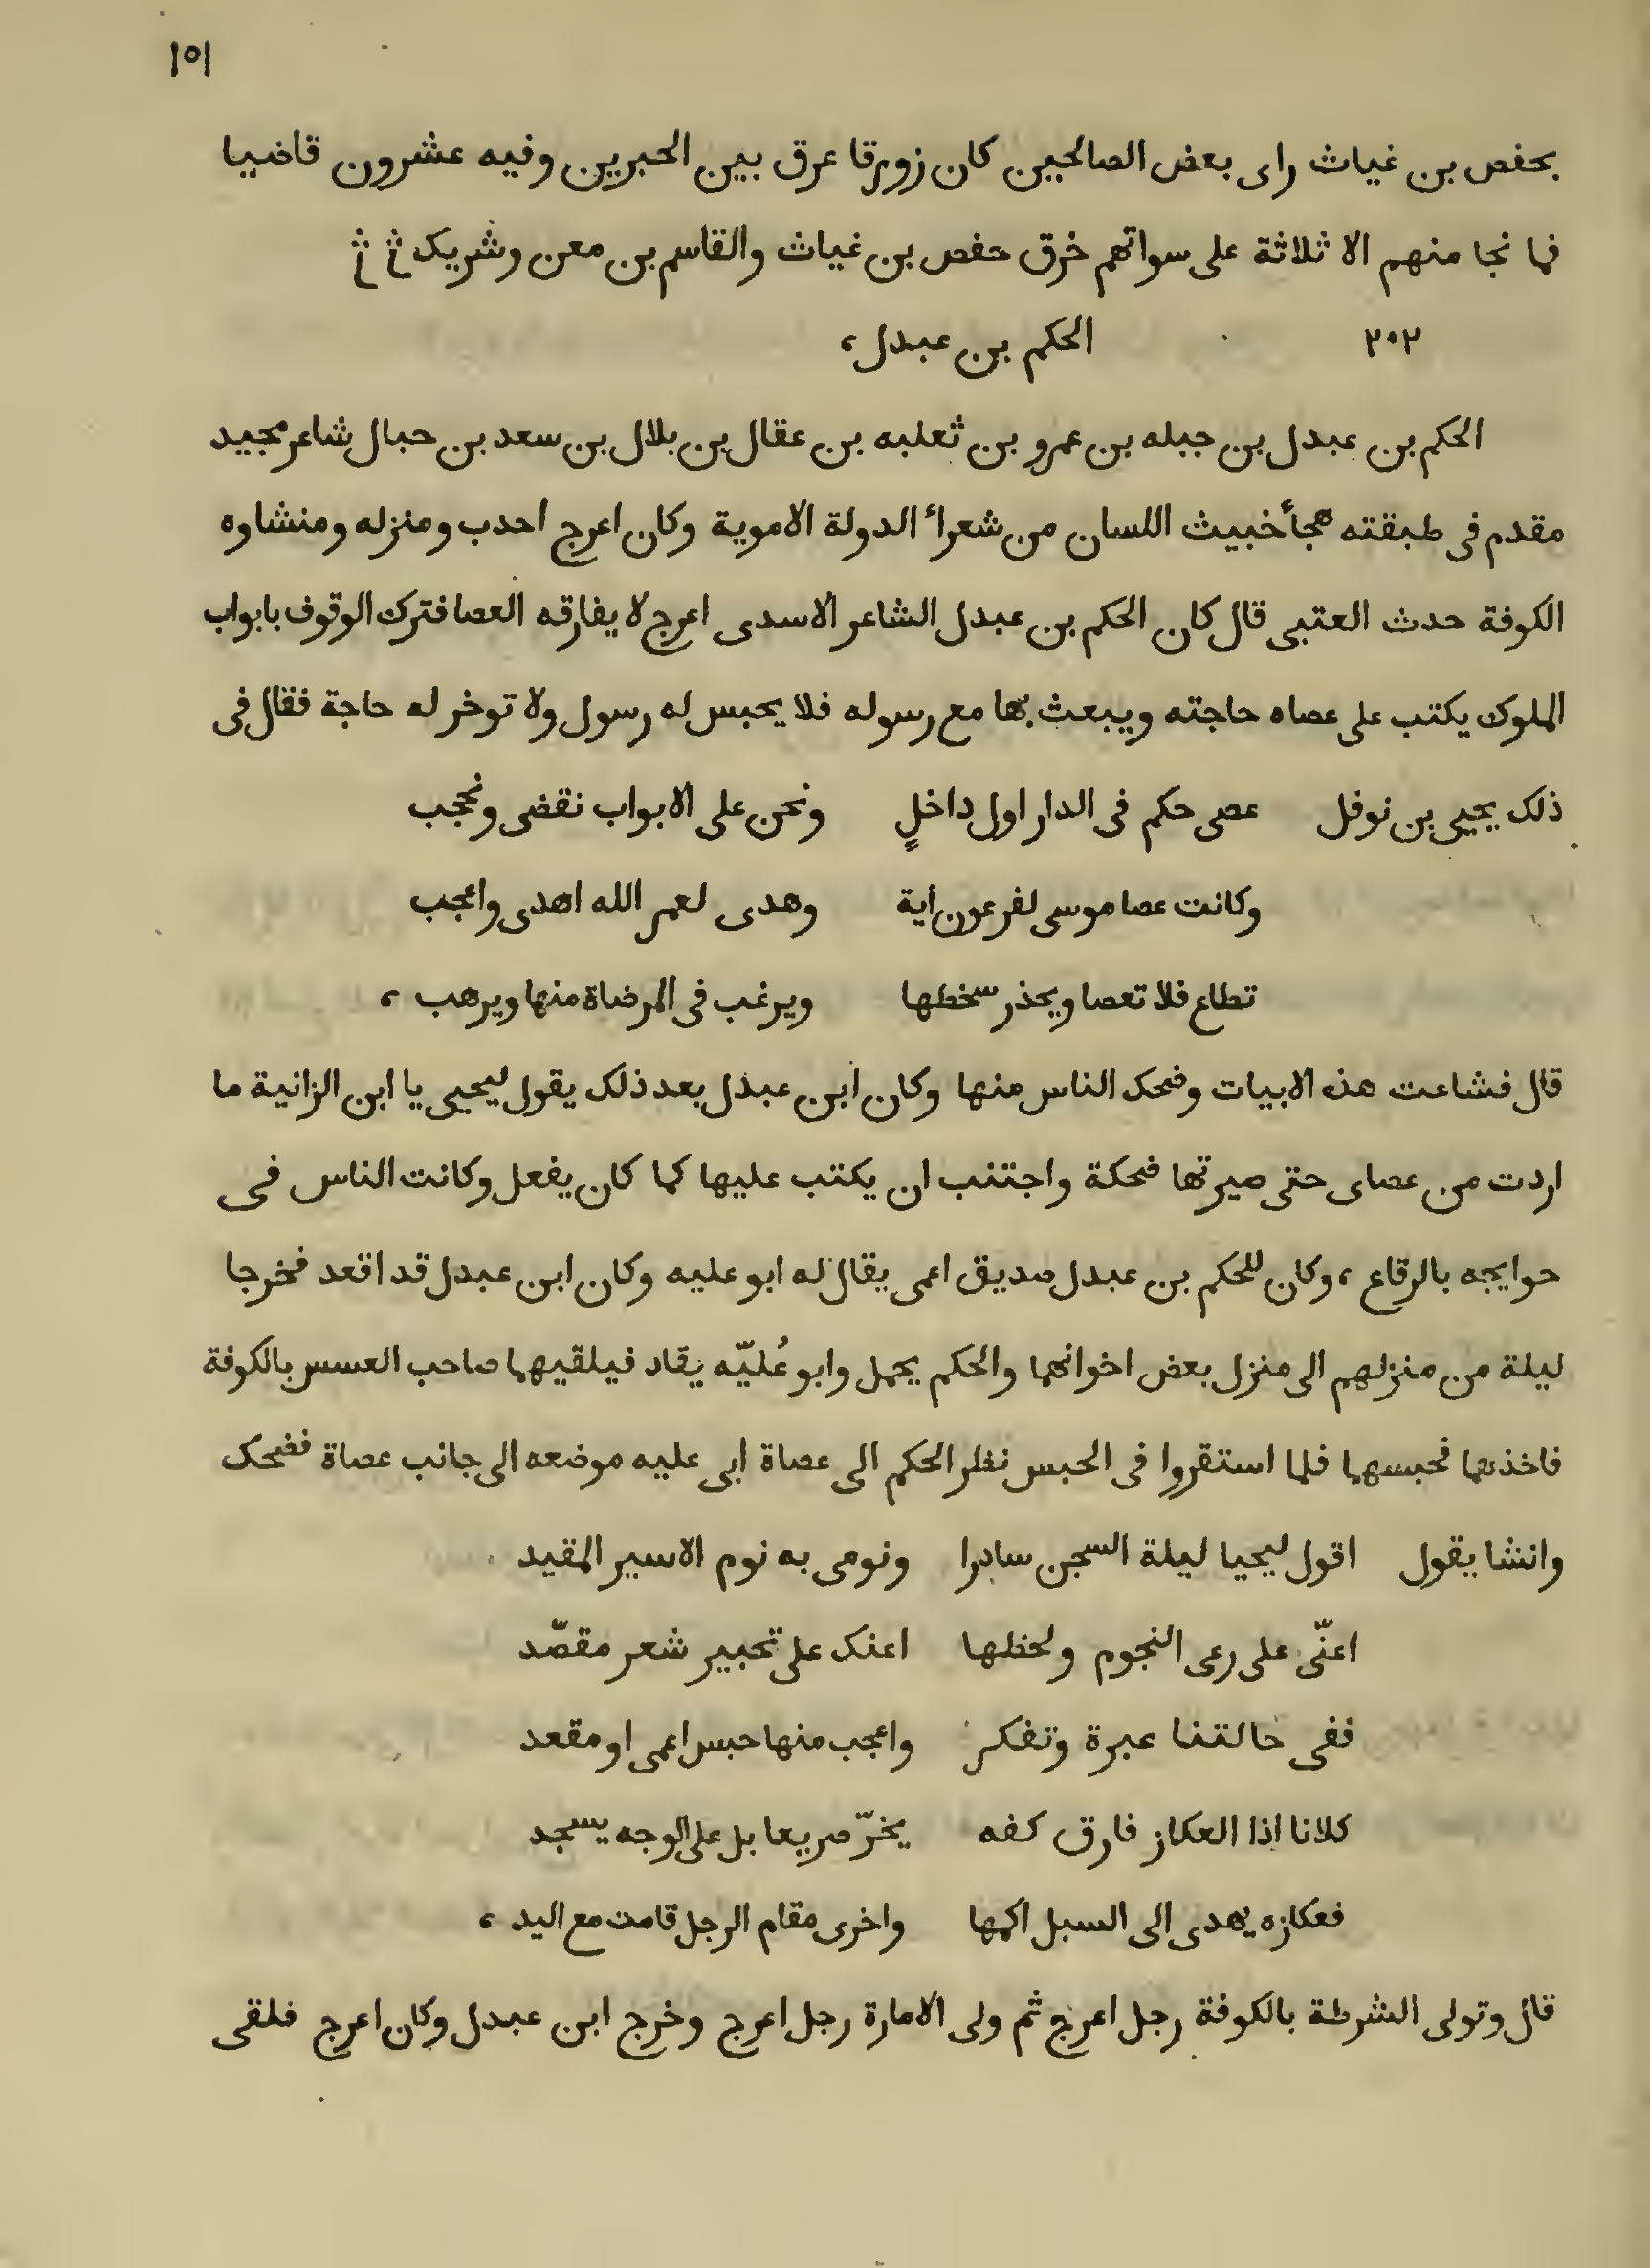 ١٥١
بحفص بن غياث راى بعض الصالحين كان زورقا عرق بين الحبرين وفيه عشرون قاضيا
فما نجا منهم الا ثلاثة على سواتهم خرق حفص بن غياث والقاسم بن معن وشريک
٢٠٢ الحكم بن عبدل،
الحكم بن عبدل بن جبله بن عمرو بن ثعلبه بن عقال بن بلال بن سعد بن حبال شاعر مجيد
مقدم فى طبقته هجأ خبيث اللسان من شعراء الدولة الاموية وكان اعرج احدب ومنزله ومنشاوه
الكوفة حدث العتبى قال كان الحكم بن عبدل الشاعر الاسدى اعرج لا يفارقه العصا فترك الوقوف بابواب
الملوك يكتب على عصاه حاجته ويبعث بها مع رسوله فلا يحبس له رسول ولا توخر له حاجة فقال فى
ذلک يحيى بن نوفل عصى حكم فى الدار اول داخلٍ ونحن على الابواب نقضى ونحجب
وكانت عصا موسى لفرعون اية وهدى لعمر الله اهدى واعجب
تطاع فلا تعصا ويحذر سخطها ويرغب فى المرضاة منها ويرهب،
قال فشاعت هذه الابيات وضحک الناس منها وكان ابن عبدل بعد ذلک يقول ليحيى يا ابن الزانية ما
اردت من عصاى حتى صيرتها ضحكة واجتنب ان يكتب عليها كما كان يفعل وكانت الناس فى
حوايجه بالرقاع، وكان للحكم بن عبدل صديق اعمى يقال له ابو عليه وكان ابن عبدل قد اقعد فخرجا
ليلة من منزلهم الى منزل بعض اخوانهما والحكم يحمل وابو عُليّه يقاد فيلقيهما صاحب العسس بالكوفة
فاخذهما فحبسهما فلما استقروا فى الحبس نظر الحكم الى عصاة ابى عليه موضعه الى جانب عصاة فضحک
وانشا يقول اقول ليحيا ليلة السجن سادرا ونومى به نوم الاسير المقيد
اعنّى على رعى النجوم ولحظها اعنک على تحبير شعر مقصّد
ففى حالتنا عبرة وتفكر واعجب منها حبس اعمى او مقعد
كلانا اذا العكاز فارق كفه يخرّ صريعا بل على الوجه يسجد
فعكازه يهدى الى السبل اكمها واخرى مقام الرجل قامت مع اليد،
قال وتولى الشرطة بالكوفة رجل اعرج ثم ولى الامارة رجل اعرج وخرج ابن عبدل وكان اعرج فلقى